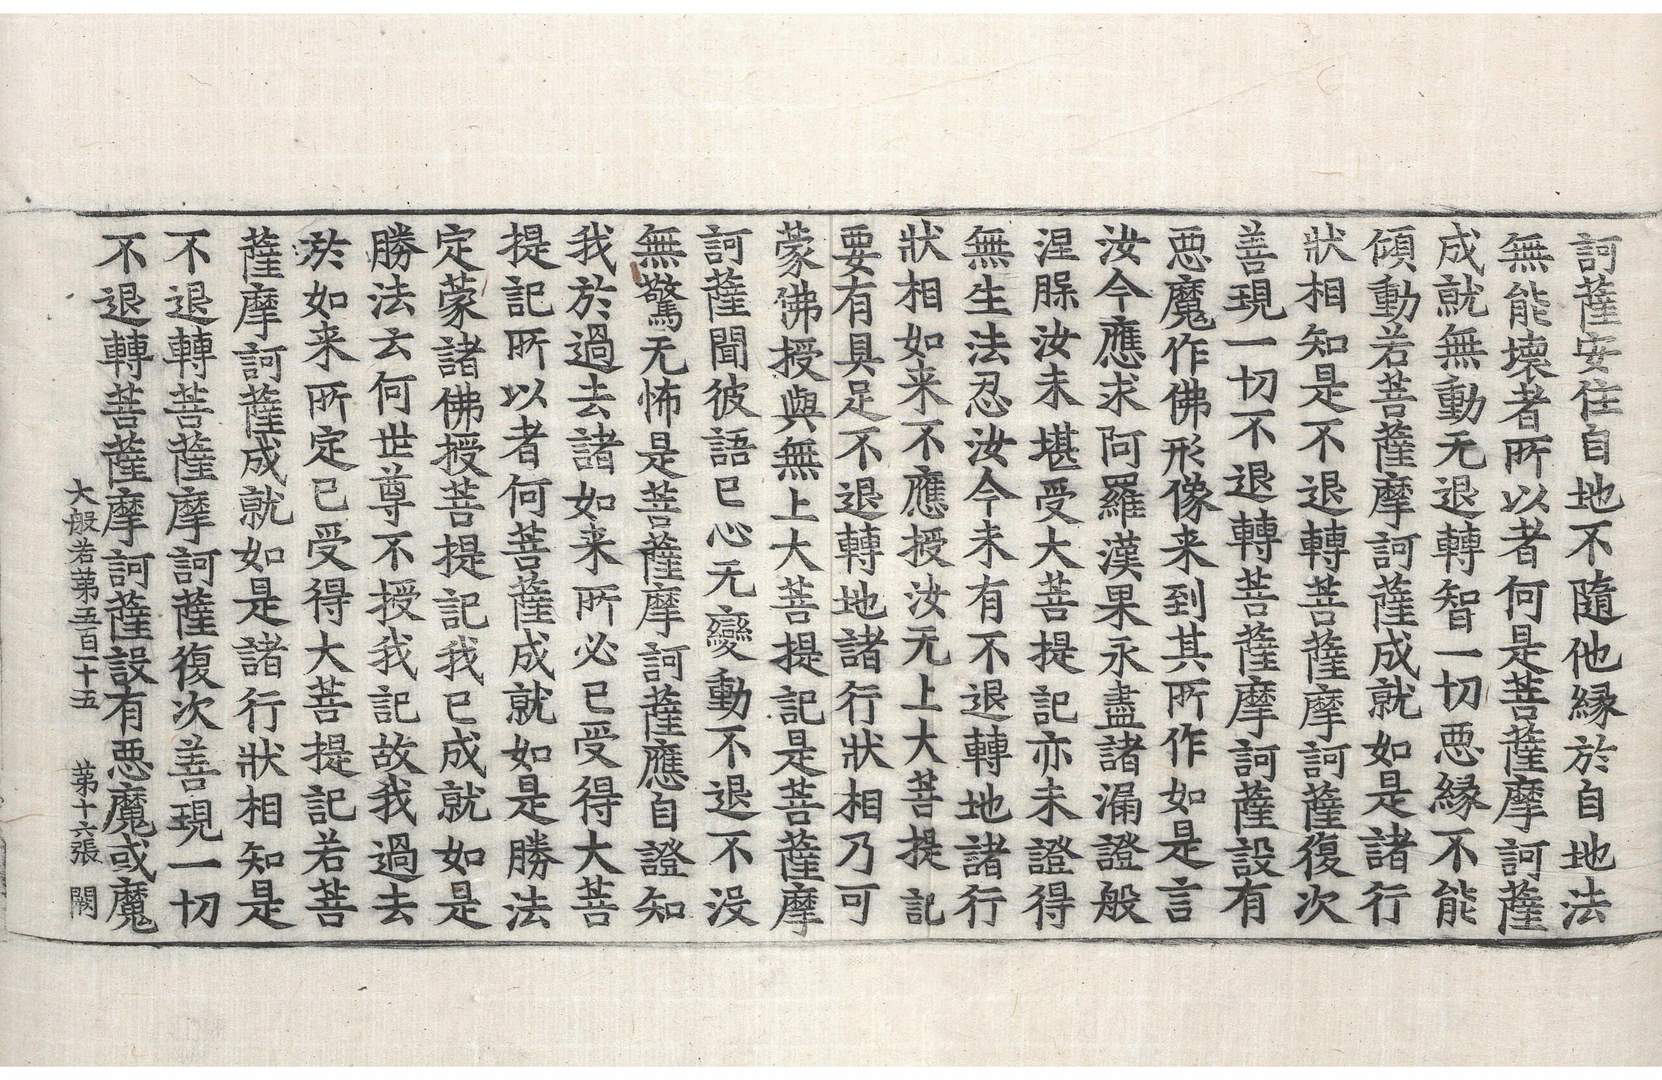 訶薩安住自地不隨他緣於自地法
無能壞者所以者何是菩薩摩訶薩
成就無動无退轉智一切惡緣不能
傾動若菩薩摩訶薩成就如是諸行
狀相知是不退轉菩薩摩訶薩復次
善現一切不退轉菩薩摩訶薩設有
惡魔作佛形像来到其所作如是言
汝今應求阿羅漢果永盡諸漏證般
涅槃汝未堪受大菩提記亦未證得
無生法忍汝今未有不退轉地諸行
狀相如来不應授汝无上大菩提記
要有具足不退轉地諸行狀相乃可
蒙佛授與無上大菩提記是菩薩摩
訶薩聞彼語已心无變動不退不沒
無驚无怖是菩薩摩訶薩應自證知
我於過去諸如来所必已受得大菩
提記所以者何菩薩成就如是勝法
定蒙諸佛授菩提記我已成就如是
勝法云何世尊不授我記故我過去
於如来所定已受得大菩提記若菩
薩摩訶薩成就如是諸行狀相知是
不退轉菩薩摩訶薩復次善現一切
不退轉菩薩摩訶薩設有惡魔或魔
大般若第五百一十五 第十六張 闕